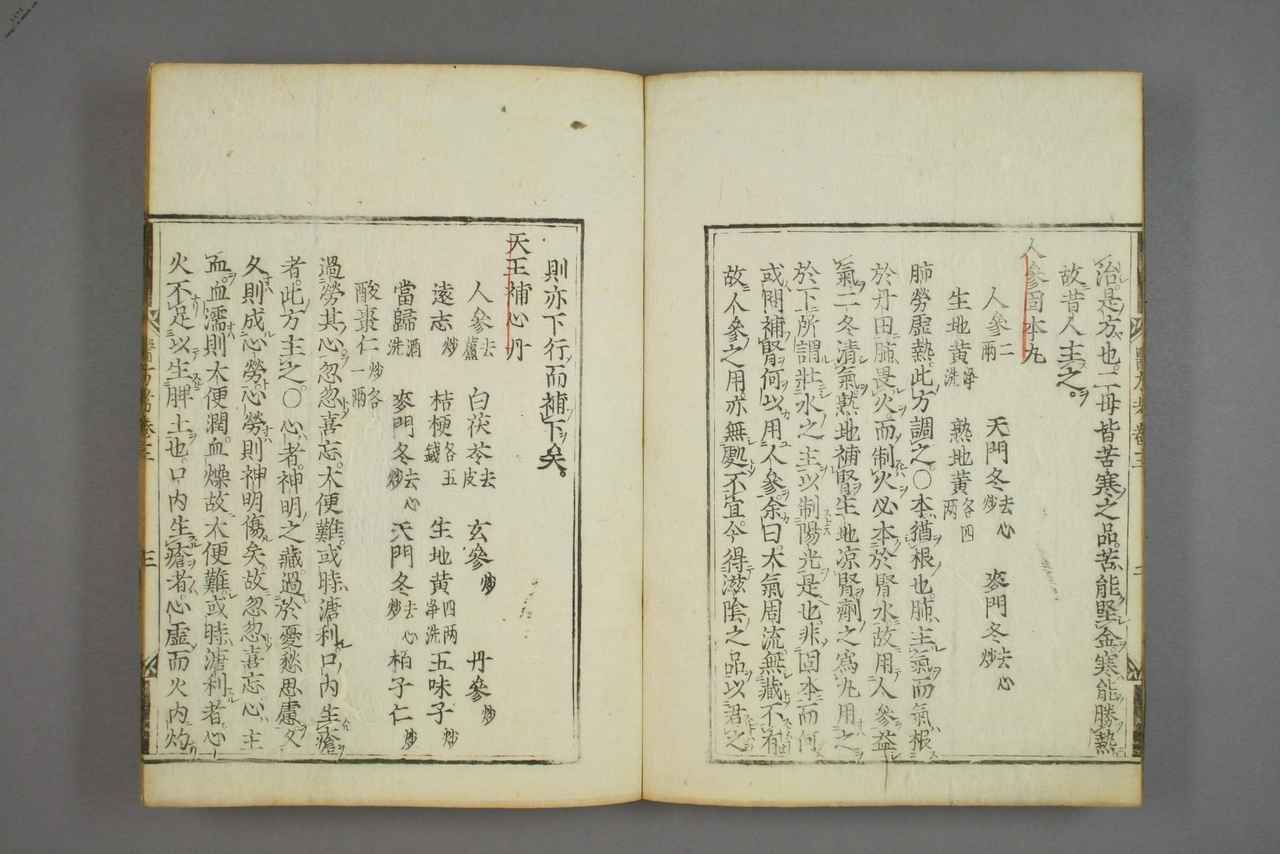 治是方也。二母皆苦寒之品。苦能堅金。寒能勝熱
故昔人主之。
人參固本丸
人參二兩 天門冬去心炒 麥門冬去心炒
生地黃淨洗 熟地黃各四兩
肺勞虛熱。此方調之。○本猶根也。肺主氣。而氣根
於丹田。肺畏火。而制火必本於腎水。故用人參益
氣。二冬清氣。熟地補腎。生地凉腎。劑之爲丸。用之
於下。所謂壯水之主。以制陽光是也。非固本而何
或問補腎何以用人參。余曰。大氣周流。無藏不有
故人參之用。亦無處不宜。今得滋陰之品以君之
則亦下行而補下矣。
天王補心丹
人參去蘆 白茯苓去皮 玄參炒 丹參炒
遠志炒 桔梗各五錢 生地黃四兩淨洗 五味子炒
當歸酒洗 麥門冬去心炒 天門冬去心炒 柏子仁炒
酸棗仁炒各一兩
過勞其心。忽忽喜忘。大便難。或時溏利。口內生瘡
者。此方主之。○心者。神明之藏。過於憂愁思慮。久
久則成心勞。心勞則神明傷矣。故忽忽喜忘。心主
血。血濡則大便潤。血燥故大便難。或時溏利者。心
火不足以生脾土也。口內生瘡者。心虛而火內灼